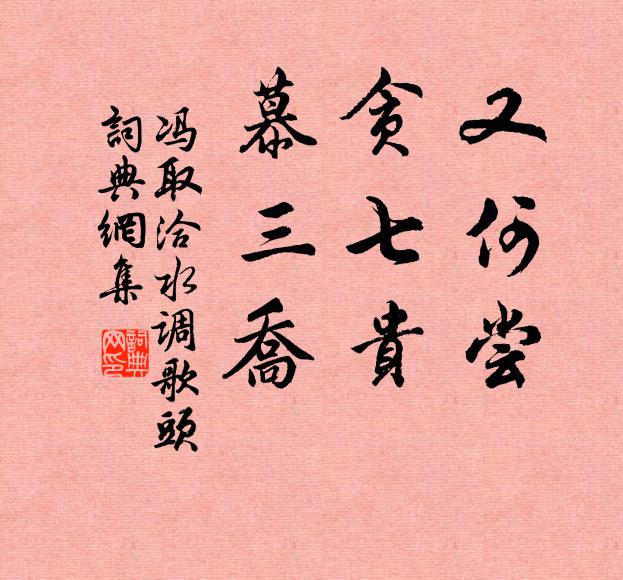 又何尝
贪七貴
慕三喬
冯取洽水调歌頭
詞典網集
詞典
网印